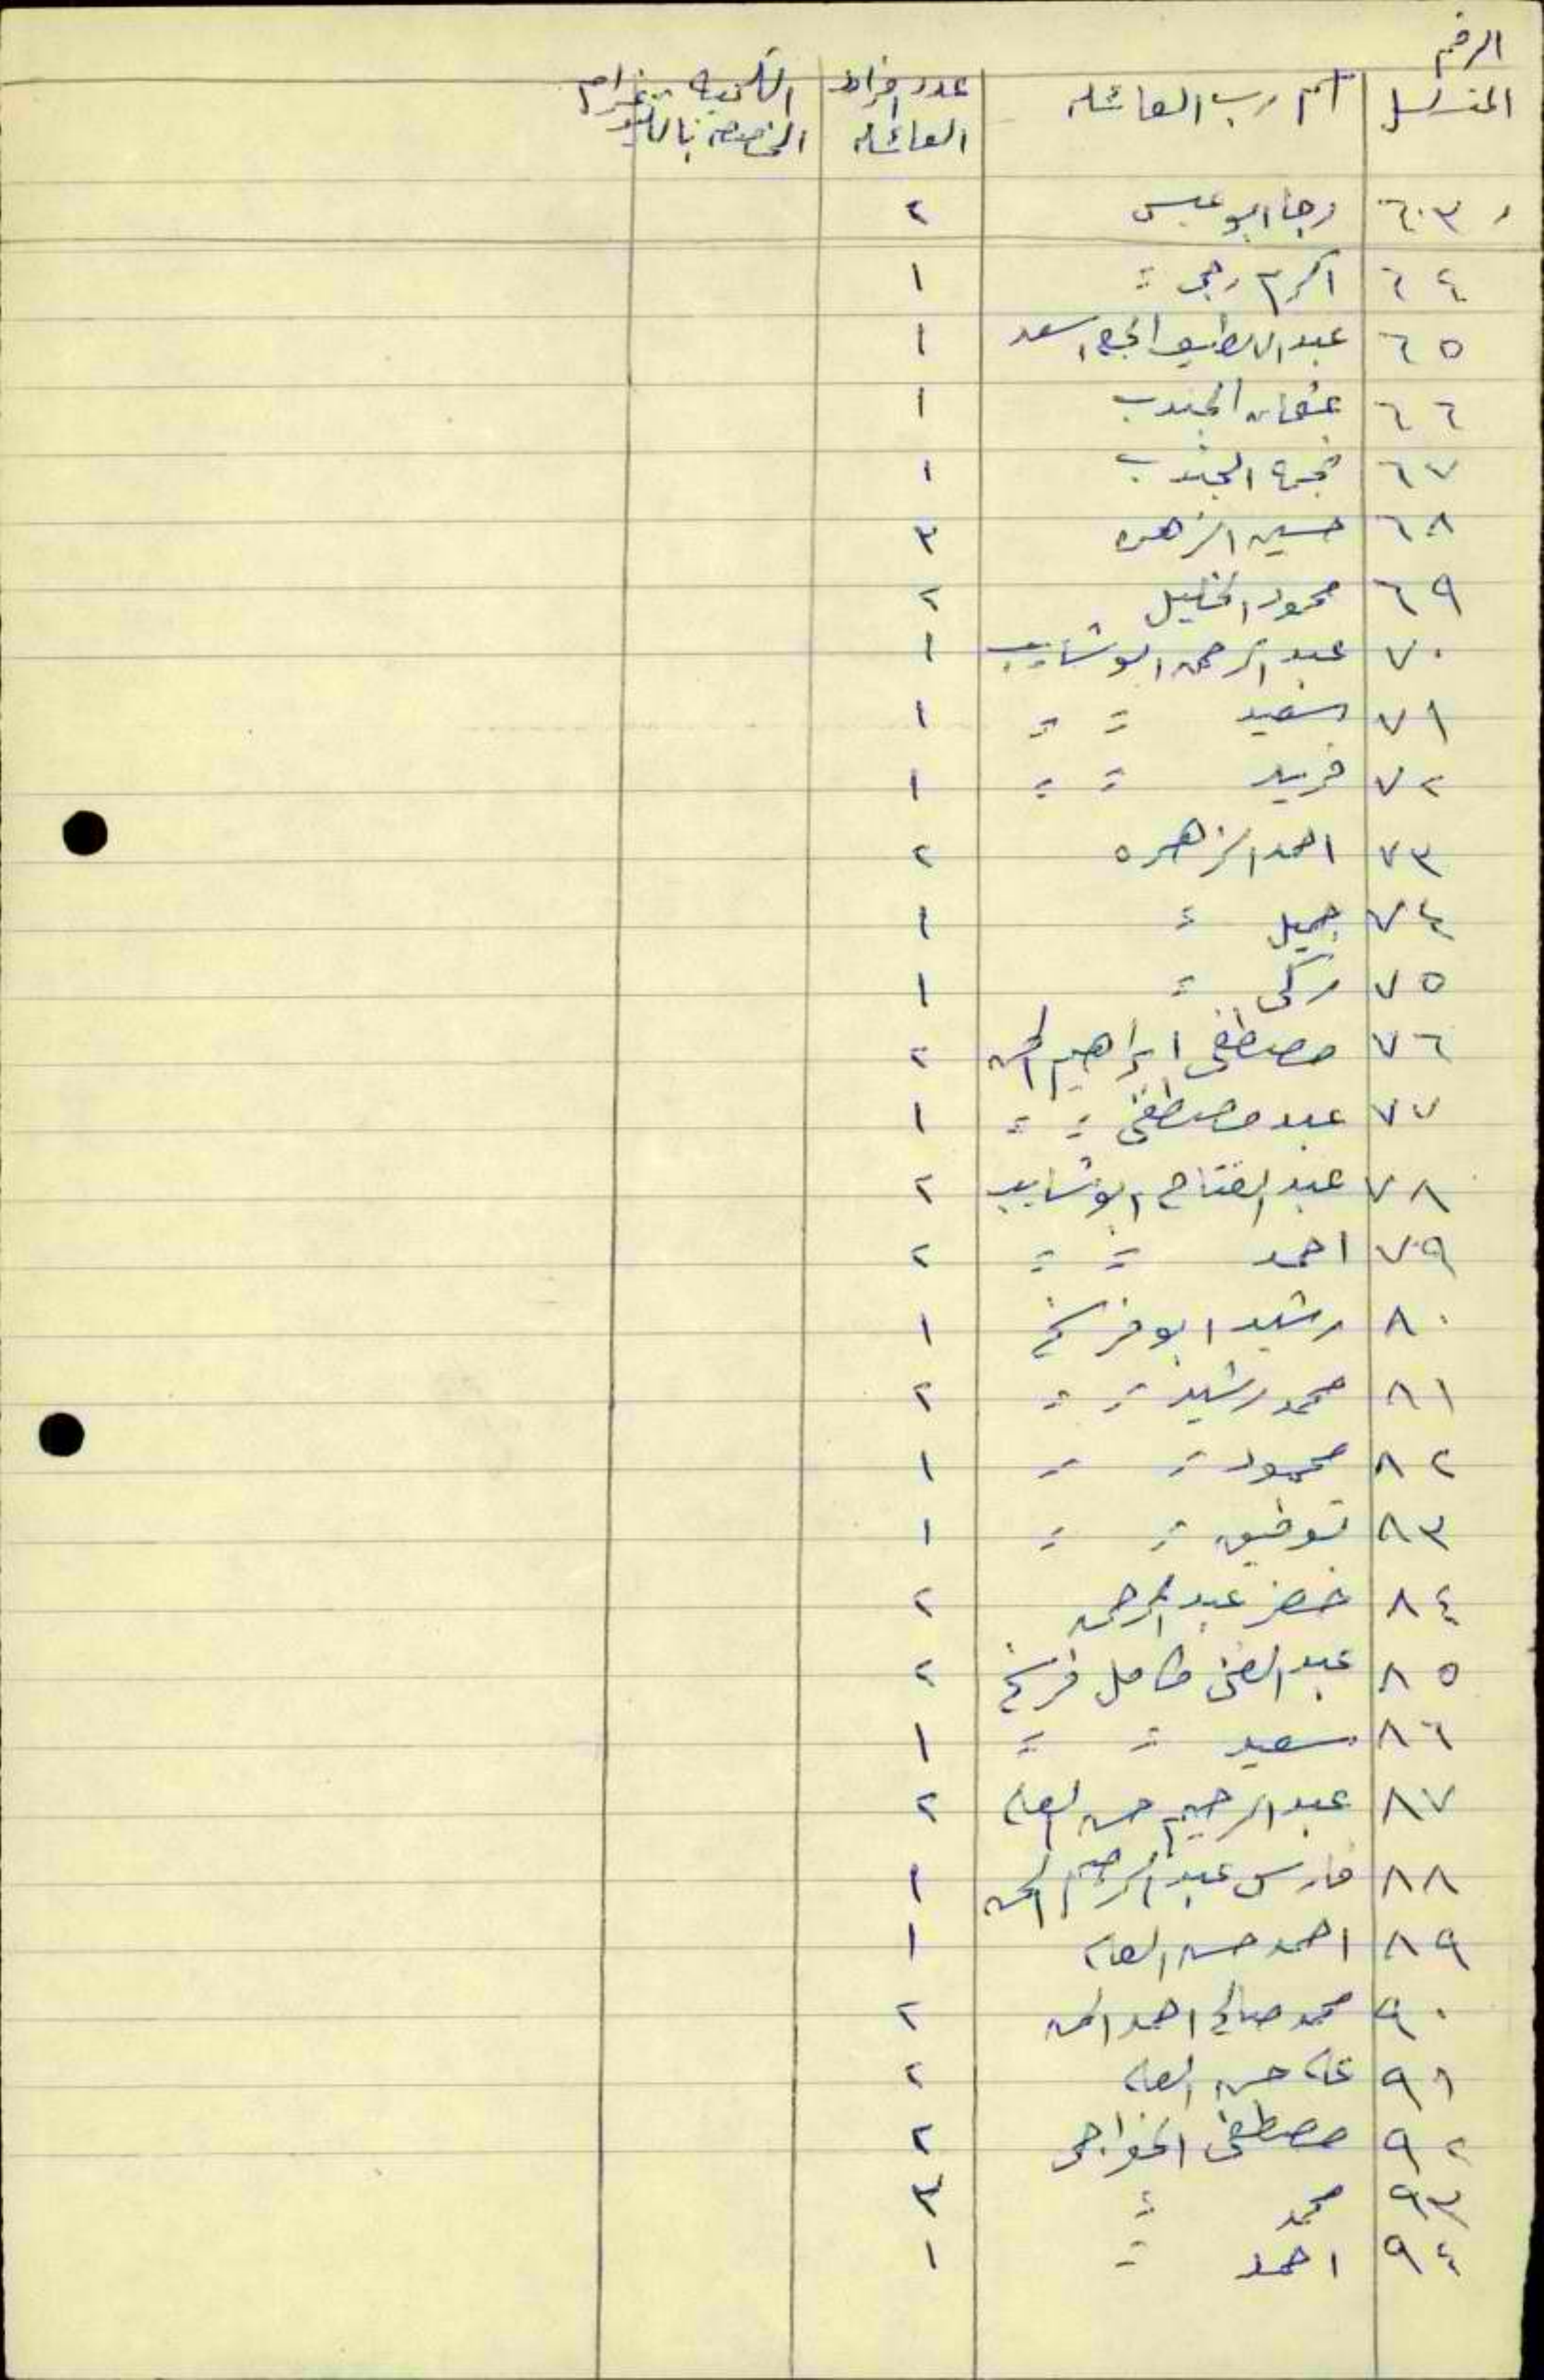 الرقم
المتسلسل اسم رب العائلة عدد افراد العائلة الكمية المخصصة بالكيلو غرام
٦٣ رجا ابو عبس ٢
٦٤ اكرم رجى = ١
٦٥ عبد اللطيف الحج اسعد ١
٦٦ عثمان الجندب ١
٦٧ نجمة الجندب ١
٦٨ حسين الزهره ٣
٦٩ محمود الخليل ٢
٧٠ عبد الرحمن ابو شايب ١
٧١ سعيد = = ١
٧٢ فريد = = ١
٧٣ احمد الزهره ٢
٧٤ جميل = ١
٧٥ زكى = ١
٧٦ مصطفى ابراهيم الحسن ٢
٧٧ عبد مصطفى = = ١
٧٨ عبد الفتاح ابو شايب ٢
٧٩ احمد = = ٢
٨٠ رشيد ابو فرخ ١
٨١ محمد رشيد = = ٢
٨٢ محمود = = ١
٨٣ توفيق = = ١
٨٤ خضر عبد الرحمن ٢
٨٥ عبد الغنى كامل فرخ ٢
٨٦ سعيد = = ١
٨٧ عبد الرحيم حسن العلي ٢
٨٨ فارس عبد الرحيم الحسن ١
٨٩ احمد حسن العلي ١
٩٠ محمد صالح احمد الحسن ٢
٩١ علي حسن العلي ٢
٩٢ مصطفى الخواجى ٢
٩٣ محمد = ٣
٩٤ احمد = ١